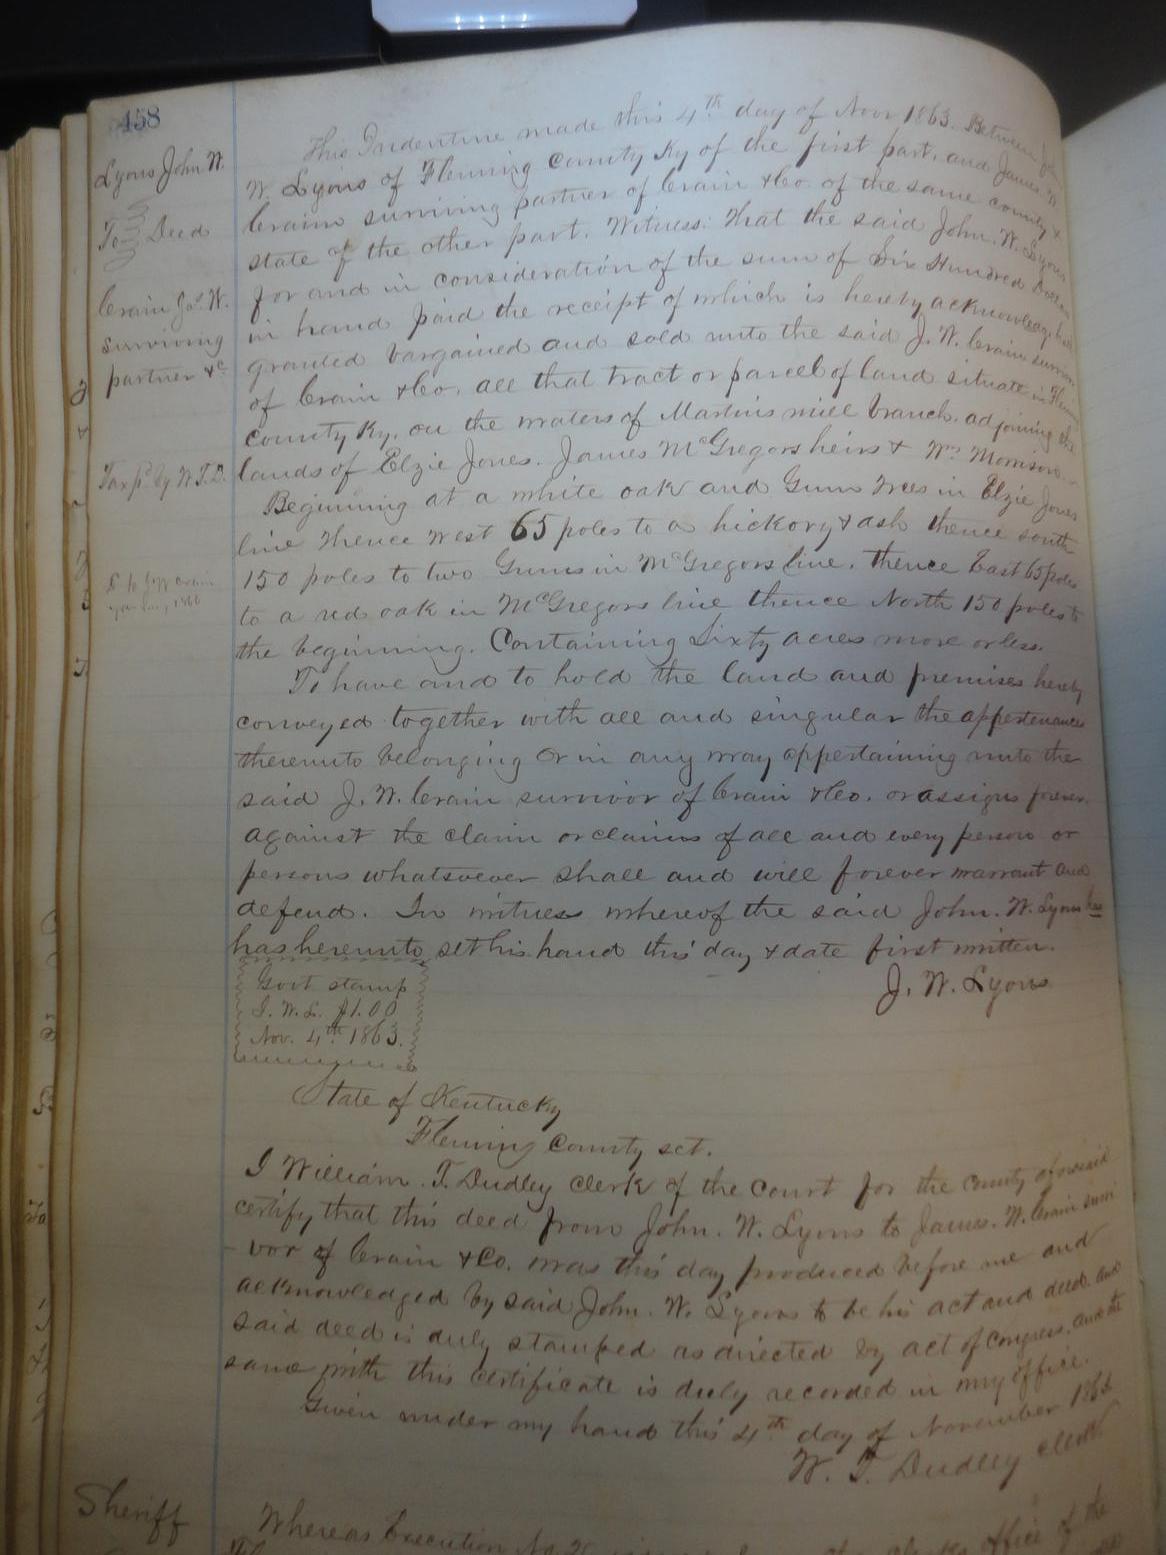 458
Lyons John W.
To Deed
Crain Jas. W.
surviving
partner &c
Tax pd. by W.T.D.
This Indenture made this 4th day of Novr 1863. Between John
W. Lyons of Fleming County Ky of the first part, and James W.
Crain surviving partner of Crain & Co. of the same county &
state of the other part. Witness: That the said John. W. Lyons
for and in consideration of the sum of Six Hundred Dollars
in hand paid the receipt of which is hereby acknowledged, has
granted bargained and sold unto the said J. W. Crain survivor
of Crain & Co. all that tract or parcel of land situate in Fleming
county Ky. on the waters of Martins mill branch. adjoining the
lands of Elzie Jones. James McGregors heirs & Wm. Morrison.
Beginning at a white oak and Gum trees in Elzie Jones
line thence West 65 poles to a hickory & ash thence south
150 poles to two Gums in McGregors line, thence East 65 poles
to a red oak in McGregors line thence North 150 poles to
the beginning. Containing Sixty acres more or less.
To have and to hold the land and premises hereby
conveyed together with all and singular the appertenances
thereunto belonging or in any way appertaining unto the
said J. W. Crain survivor of Crain & Co. or assigns forever.
against the claim or claims of all and every person or
persons whatsoever shall and will forever warrant and
defend. In witness whereof the said John. W. Lyons has
has hereunto set his hand this day & date first written.
J. W. Lyons
Govt stamp
J. W. L. $1.00
Nov. 4th 1863.
State of Kentucky
Fleming County sct.
I William. T. Dudley clerk of the court for the county aforesaid
certify that this deed from John. W. Lyons to James. W. Crain survi
-vor of Crain & Co. was this day produced before me and
acknowledged by said John. W. Lyons to be his act and deed. and
said deed is duly stamped as directed by act of Congress. and the
same with this certificate is duly recorded in my office.
Given under my hand this 4th day of November 1863
W. T. Dudley clerk
Sheriff
Whereas Execution No office of the